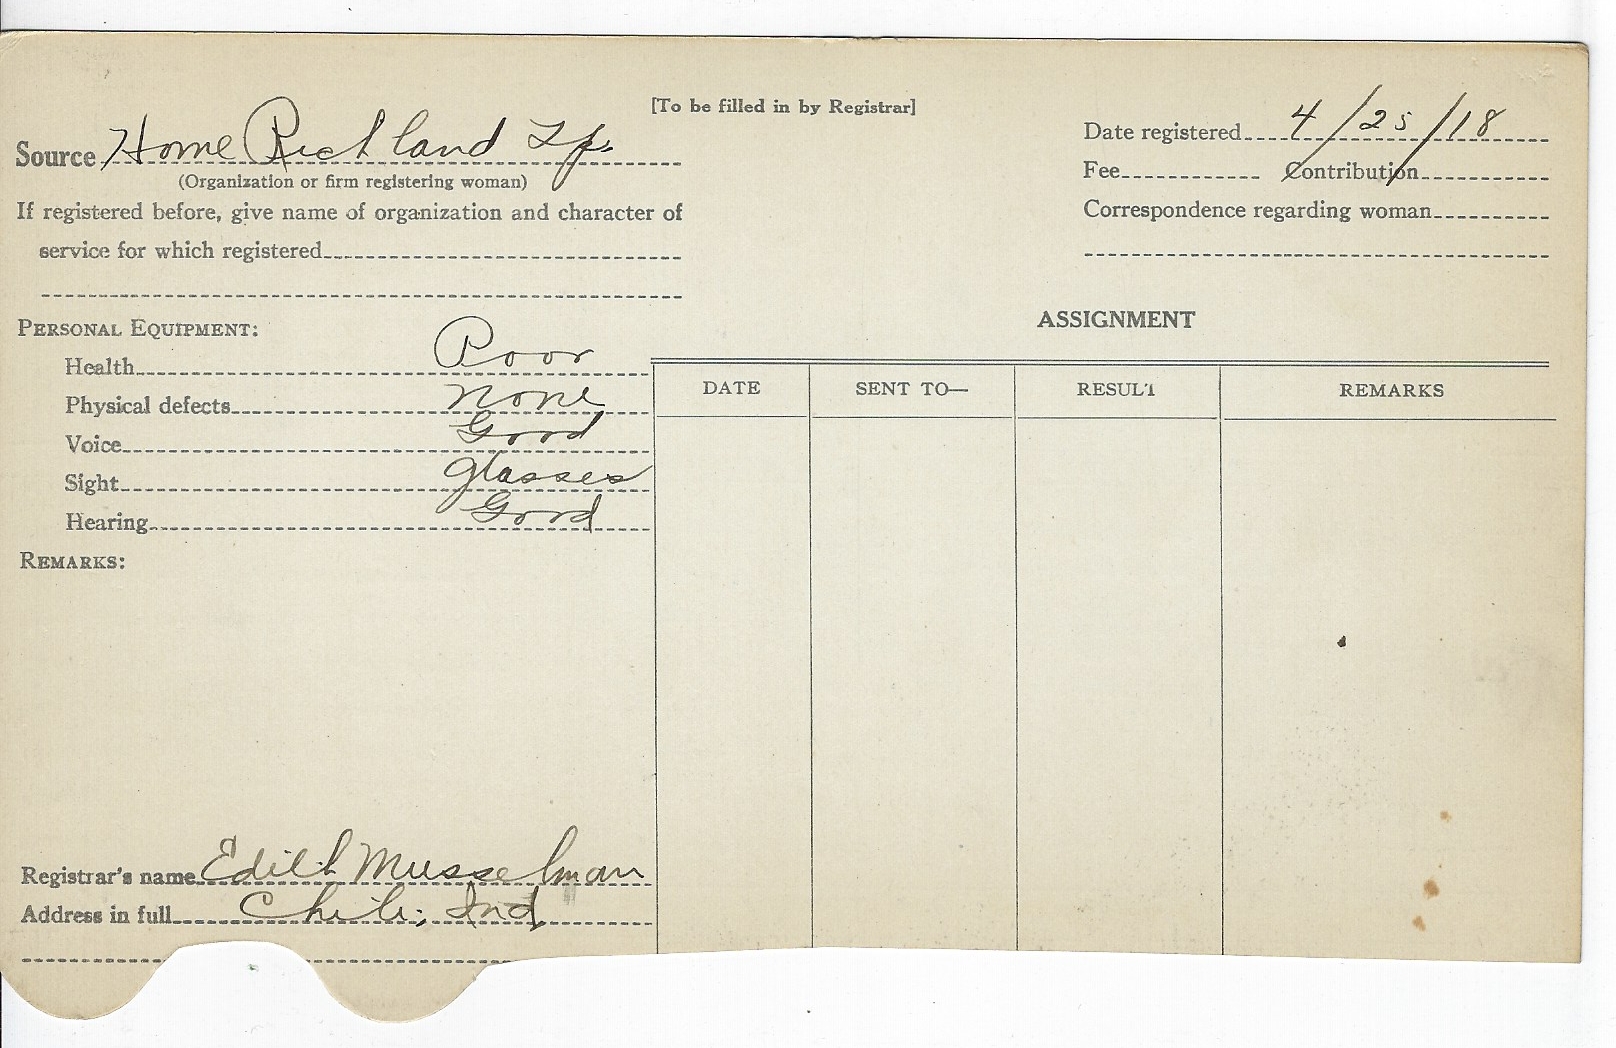 [To be filled in by Registrar]
Source Home Richland Tp.
(Organization or firm registering woman)
If registered before, give name of organization and character of
service for which registered
Date registered 4/25/18
Fee Contribution
Correspondence regarding woman
PERSONAL EQUIPMENT:
Health Poor
Physical defects none
Voice Good
Sight glasses
Hearing Good
REMARKS:
Registrar's name Edith Musselman
Address in full Chili, Ind
ASSIGNMENT
DATE SENT TO— RESULT REMARKS